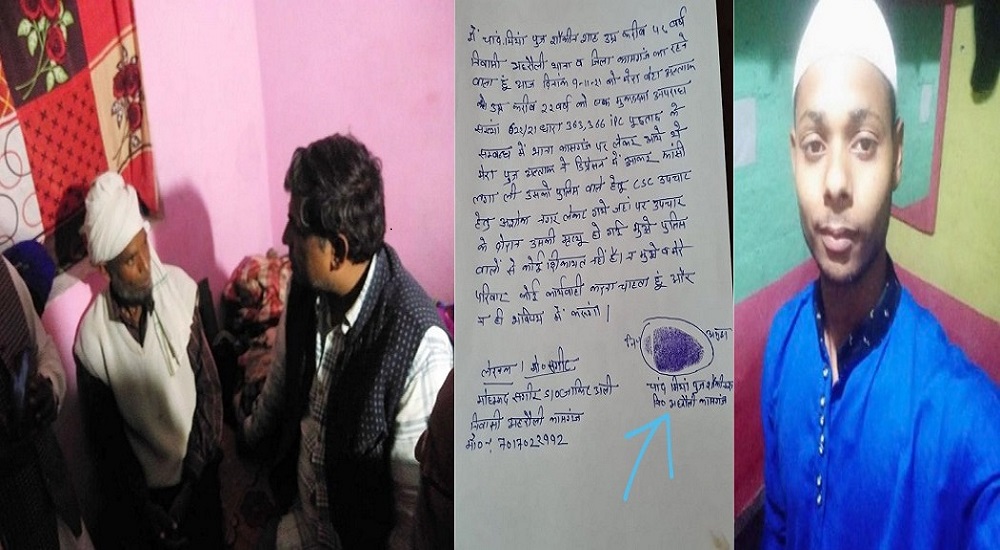 में चांद मियां पुत्र शौकीन शाह उम्र करीब ५५ वर्ष
निवासी अहरौली थाना व जिला कासगंज का रहने
वाला हूं आज दिनांक 9-11-21 को मेरा बेटा अल्ताफ
उम्र करीब २२ वर्ष को एक मुकदमा अपराध
संख्या धारा 363,366 IPC पूछताछ के
सम्बन्ध में थाना कासगंज पर लेकर आये थे
मेरा पुत्र अल्ताफ ने डिप्रेशन में आकर फांसी
लगा ली उसको पुलिस वाले हेतु CSC उपचार
हेतु अशोक नगर लेकर गये जहां पर उपचार
के दौरान उसकी मृत्यू हो गई मुझे पुलिस
वालों से कोई शिकायत नहीं है। न मुझे व मेरे
परिवार कोई कार्यवाही करना चाहता हूं और
न ही भविष्य में करूंगा।
लेखक। मो० सगीर
मोहम्मद सगीर S/O जाकिर अली
निवासी अहरौली कासगंज
मो०-: 7017022992
नि० अंगूठा
चांद मियां पुत्र
नि० अहरौली कासगंज